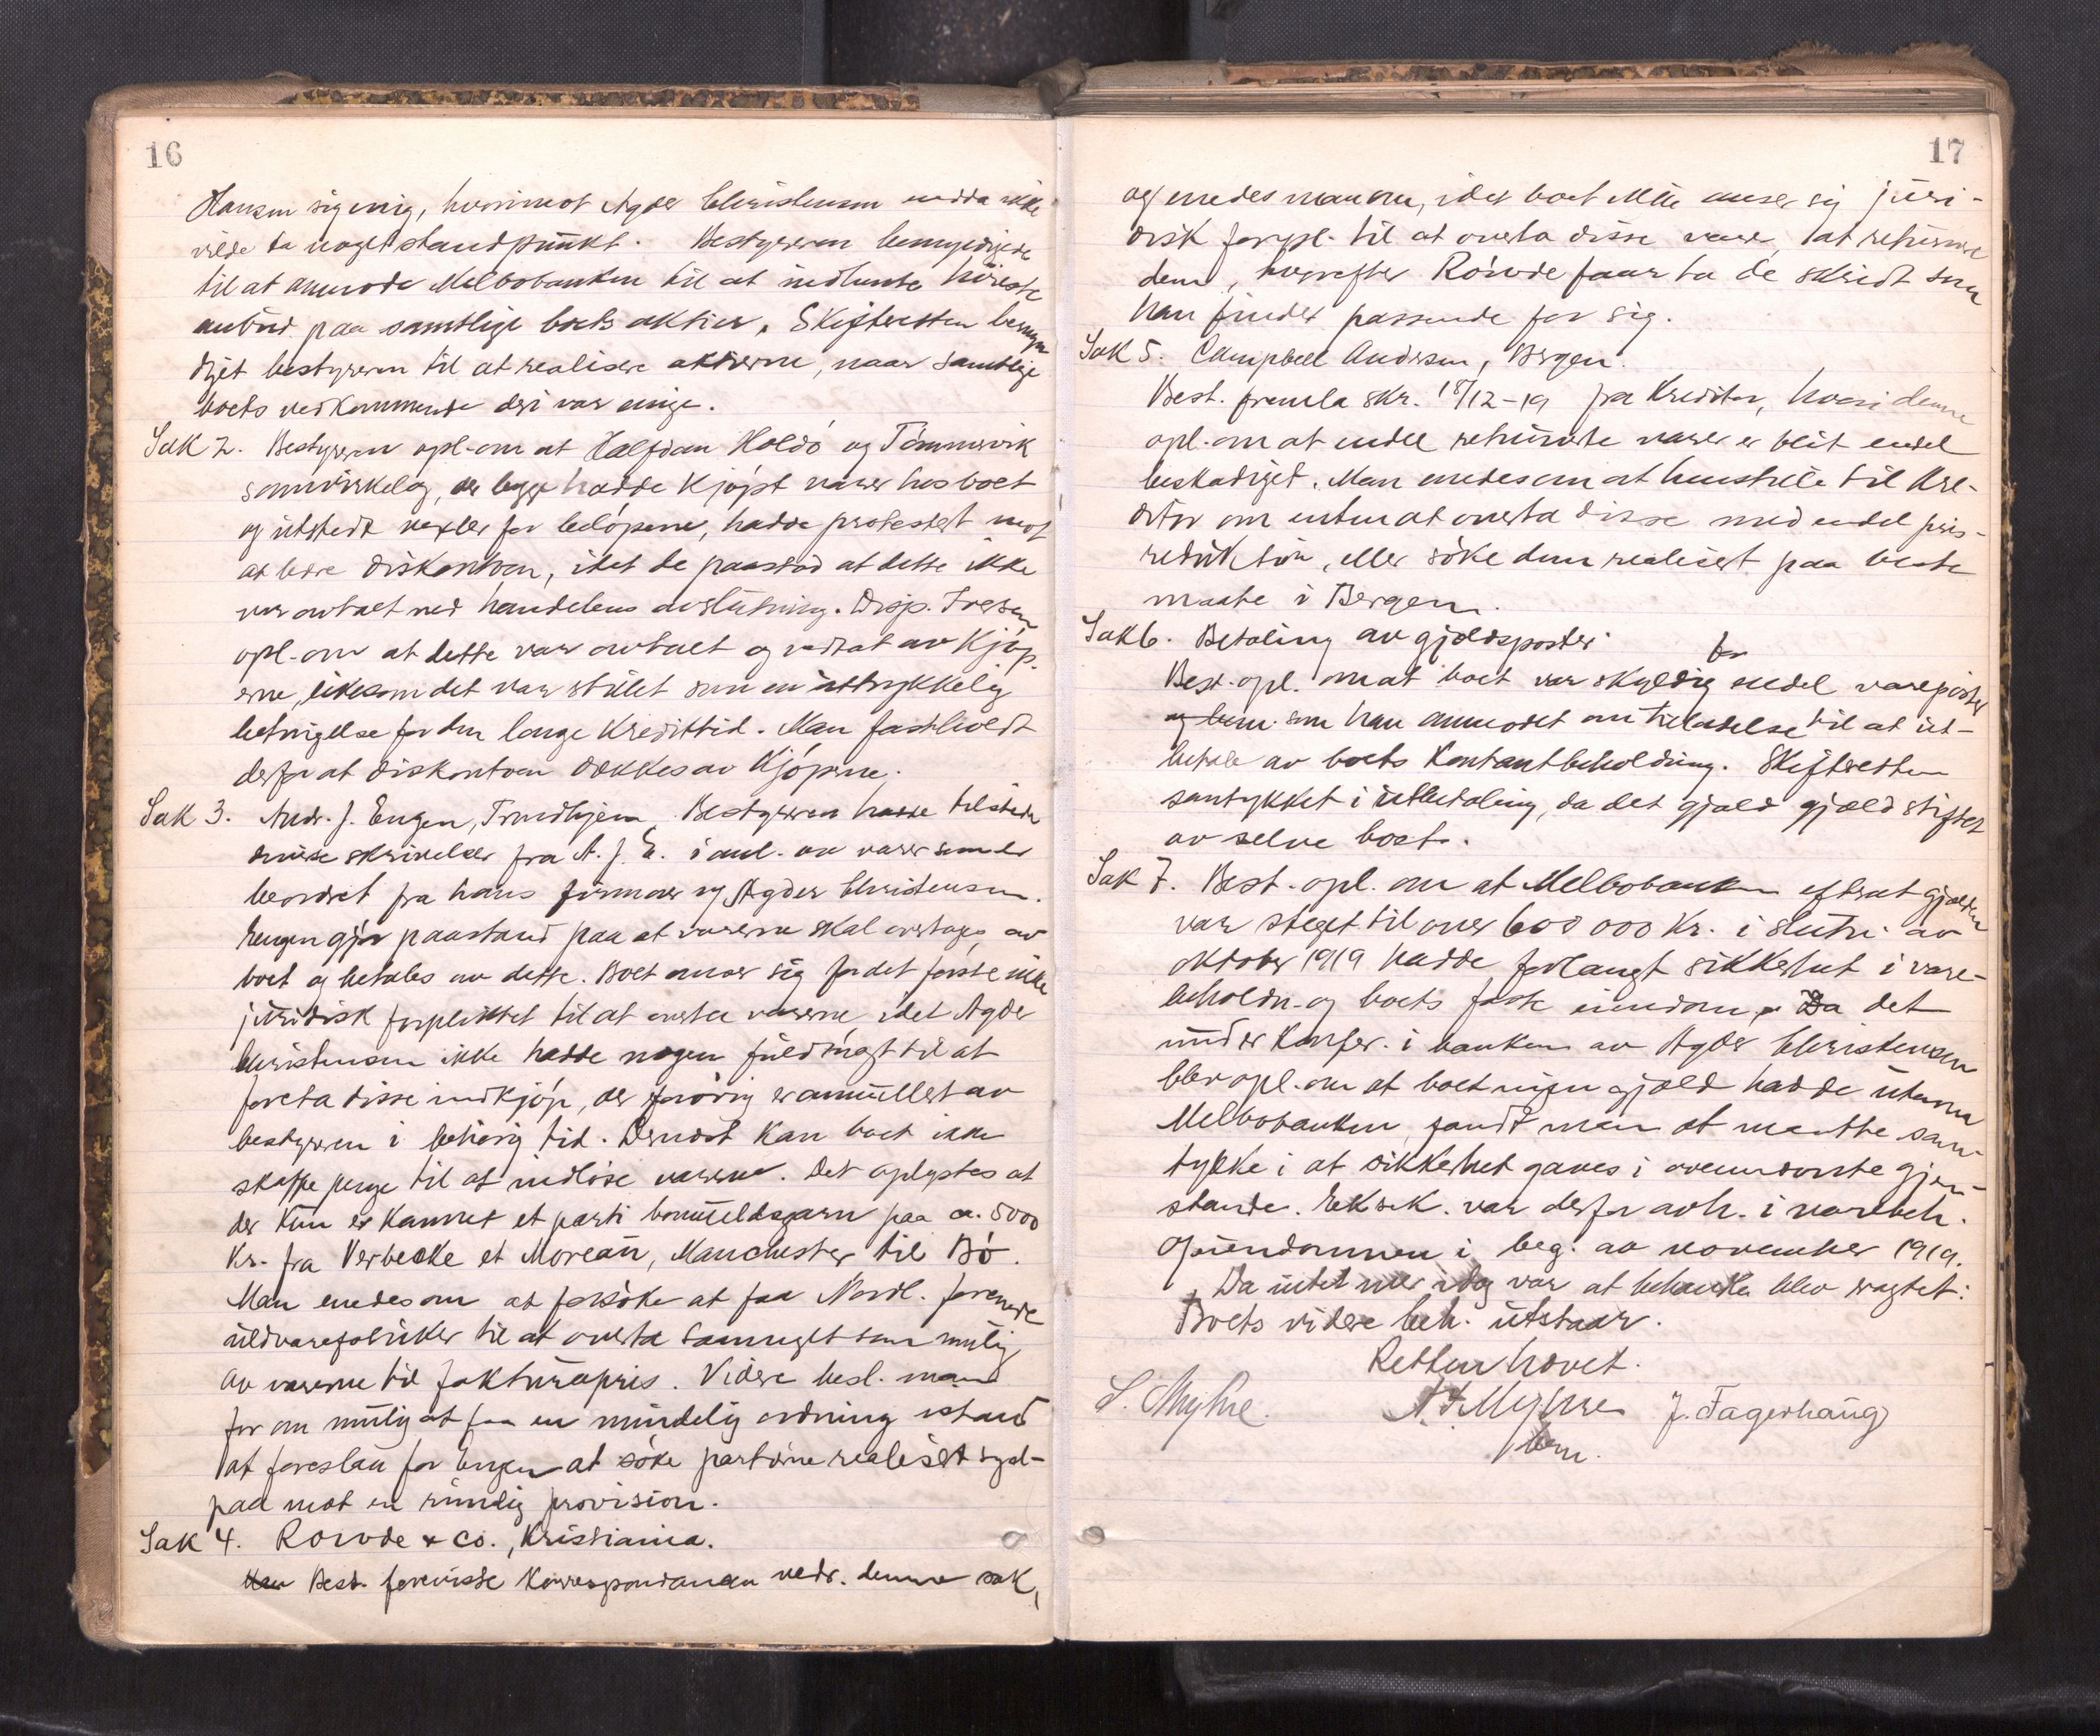 16
Hansen sig enig, hvorimot Agder Christensen endda ikke
vilde ta noget standpunkt. Bestyreren bemyndigedes
til at anmode Melbobanken til at indhente höieste
anbud paa samtlige boets aktier. Skifteretten bemyn
diget bestyreren til at realisere aktierne, naar samtlige
boets vedkommende deri var enige.
Sak 2. Bestyreren opl. om at Halfdan Holdö og Tömmervik
samvirkelag, der begge hadde kjöpt varer hos boet
og utstedt vexler for belöpene, hadde protestert mot
at bære diskontoen, idet de paastod at dette ikke
var avtalt ved handelens avslutning. Disp. Iversen
opl. om at dette var avtalt og vedtat av kjöp-
erne, likesom det var stillet som en uttrykkelig
betingelse for den lange kredittid. Man fastholdt
derfor at diskontoen dækkes av kjöperne.
Sak 3. Andr. J. Engen, Trondhjem. Bestyreren hadde tilstede
diverse skrivelser fra A. J. E. i anl. av varer som er
beordret fra hans firmaer og Agder Christensen.
Engen gjör paastand paa at varerne skal overtages av
boet og betales av dette. Boet anser sig for det förste ikke
juridisk forpliktet til at overta varerne, idet Agder
Christensen ikke hadde nogen fuldmagt til at
foreta disse indkjöp, der forövrig er annullert av
bestyreren i behörig tid. Dernæst kan boet ikke
skaffe penge til at indlöse varerne. Det oplystes at
der kun er kommet et parti bomuldsgarn paa ca. 5000
Kr. fra Verbecke et Moreau, Manchester til Bö.
Man enedes om at forsöke at faa Nordl. forenede
uldvarefabriker til at overta saameget som mulig
av varerne til fakturapris. Videre besl. man
for om mulig at faa en mindelig ordning istand
at foreslaa for Engen at söke partierne realisert syd-
paa mot en rimelig provision.
Sak 4. Rowde & Co., Kristiania.
Man Best. foreviste korrespondancen vedr. denne sak,
17
og enedes man om, idet boet ikke anser sig juri-
disk forpl. til at overta disse varer, at returnere
dem, hvorefter Rowde faar ta de skridt som
han finder passende for sig.
Sak 5. Campbell Andersen, Bergen.
Best. fremla skr. 18/12-19 fra kreditor, hvori denne
opl. om at endel returnerte varer er blit endel
beskadiget. Man enedes om at henstille til kre-
ditor om enten at overta disse med endel pris-
reduktion, eller söke dem realisert paa beste
maate i Bergen.
Sak 6. Betaling av gjældsposter.
Best. opl. om at boet var skyldig for endel vareposter
og som han anmodet om tilladelse til at ut-
betale av boets kontantbeholdning. Skifteretten
samtykket i utbetaling, da det gjald gjæld stiftet
av selve boet.
Sak 7. Best. opl. om at Melbobanken efterat gjælden
var steget til over 600 000 Kr. i slutn. av
oktober 1919 hadde forlangt sikkerhet i vare-
beholdn. og boets faste eiendom. Da det
under konfer. i banken av Agder Christensen
blev opl. om at boet ingen gjæld hadde utenom
Melbobanken fandt man at maatte sam-
tykke i at sikkerhet gaves i ovennævnte gjen-
stande. Eksek. var derfor avh. i varebeh.
og eiendommen i beg. av november 1919.
Da intet mer idag var at behandle blev vagtet:
Boets videre beh. utstaar.
Retten hævet.
S. Myhre. A. F. Myhre J. Fagerhaug